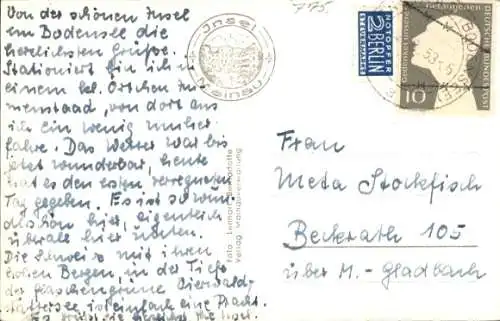 Von der schönen Insel
im Bodensee die
herzlichsten Grüße.
Stationiert bin ich in
einem kl. Örtchen Im-
menstaad, von dort aus
ich ein wenig umher
fahre. Das Wetter war bis
jetzt wunderbar, heute
hat es den ersten verregneten
Tag gegeben. Es ist so wun-
derschön hier, eigentlich
überall hier unten.
Die Schweiz mit ihren
hohen Bergen, in der Tiefe
der flaschengrüne Vierwald-
stättersee, ist einfach eine Pracht.
Es grüßt Sie herzlichst Ihre
Insel
Mainau
775
NOTOPFER
2 BERLIN
STEUERMARKE
Gefangenen
DEUTSCHE BUNDESPOST
10
53-5
Foto: Lennart Bernadotte
Verlag: Mainauverwaltung
Frau
Meta Stockfisch
Beckrath 105
über M.-Gladbach